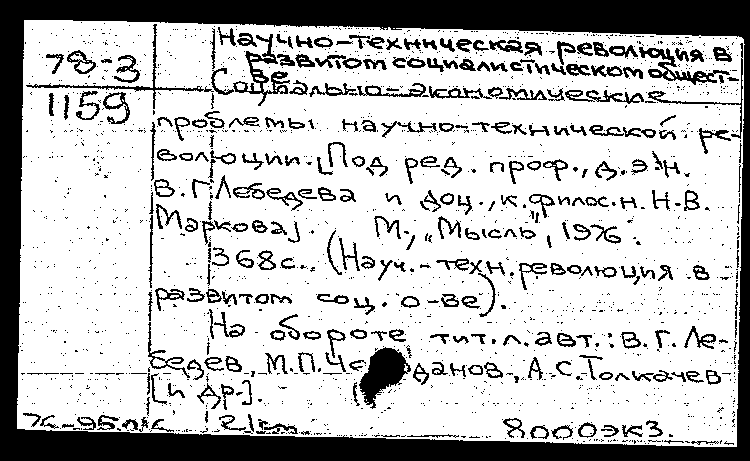 Научно-техническая революция в
развитом социалистическом общест-
ве
78-3
Социально-экономические
1159
проблемы научно-технической ре-
волюции. [Под ред. проф., д.э.н.
В.Г Лебедева и доц., к.филос.н. Н.В.
Маркова]. М., „Мысль", 1976.
368с. (Науч.-техн. революция в
развитом соц. о-ве).
На обороте тит.л. авт.: В.Г. Ле-
бедев, М.П. данов, А.С. Толкачев
[и др.].
21см. 8000экз.